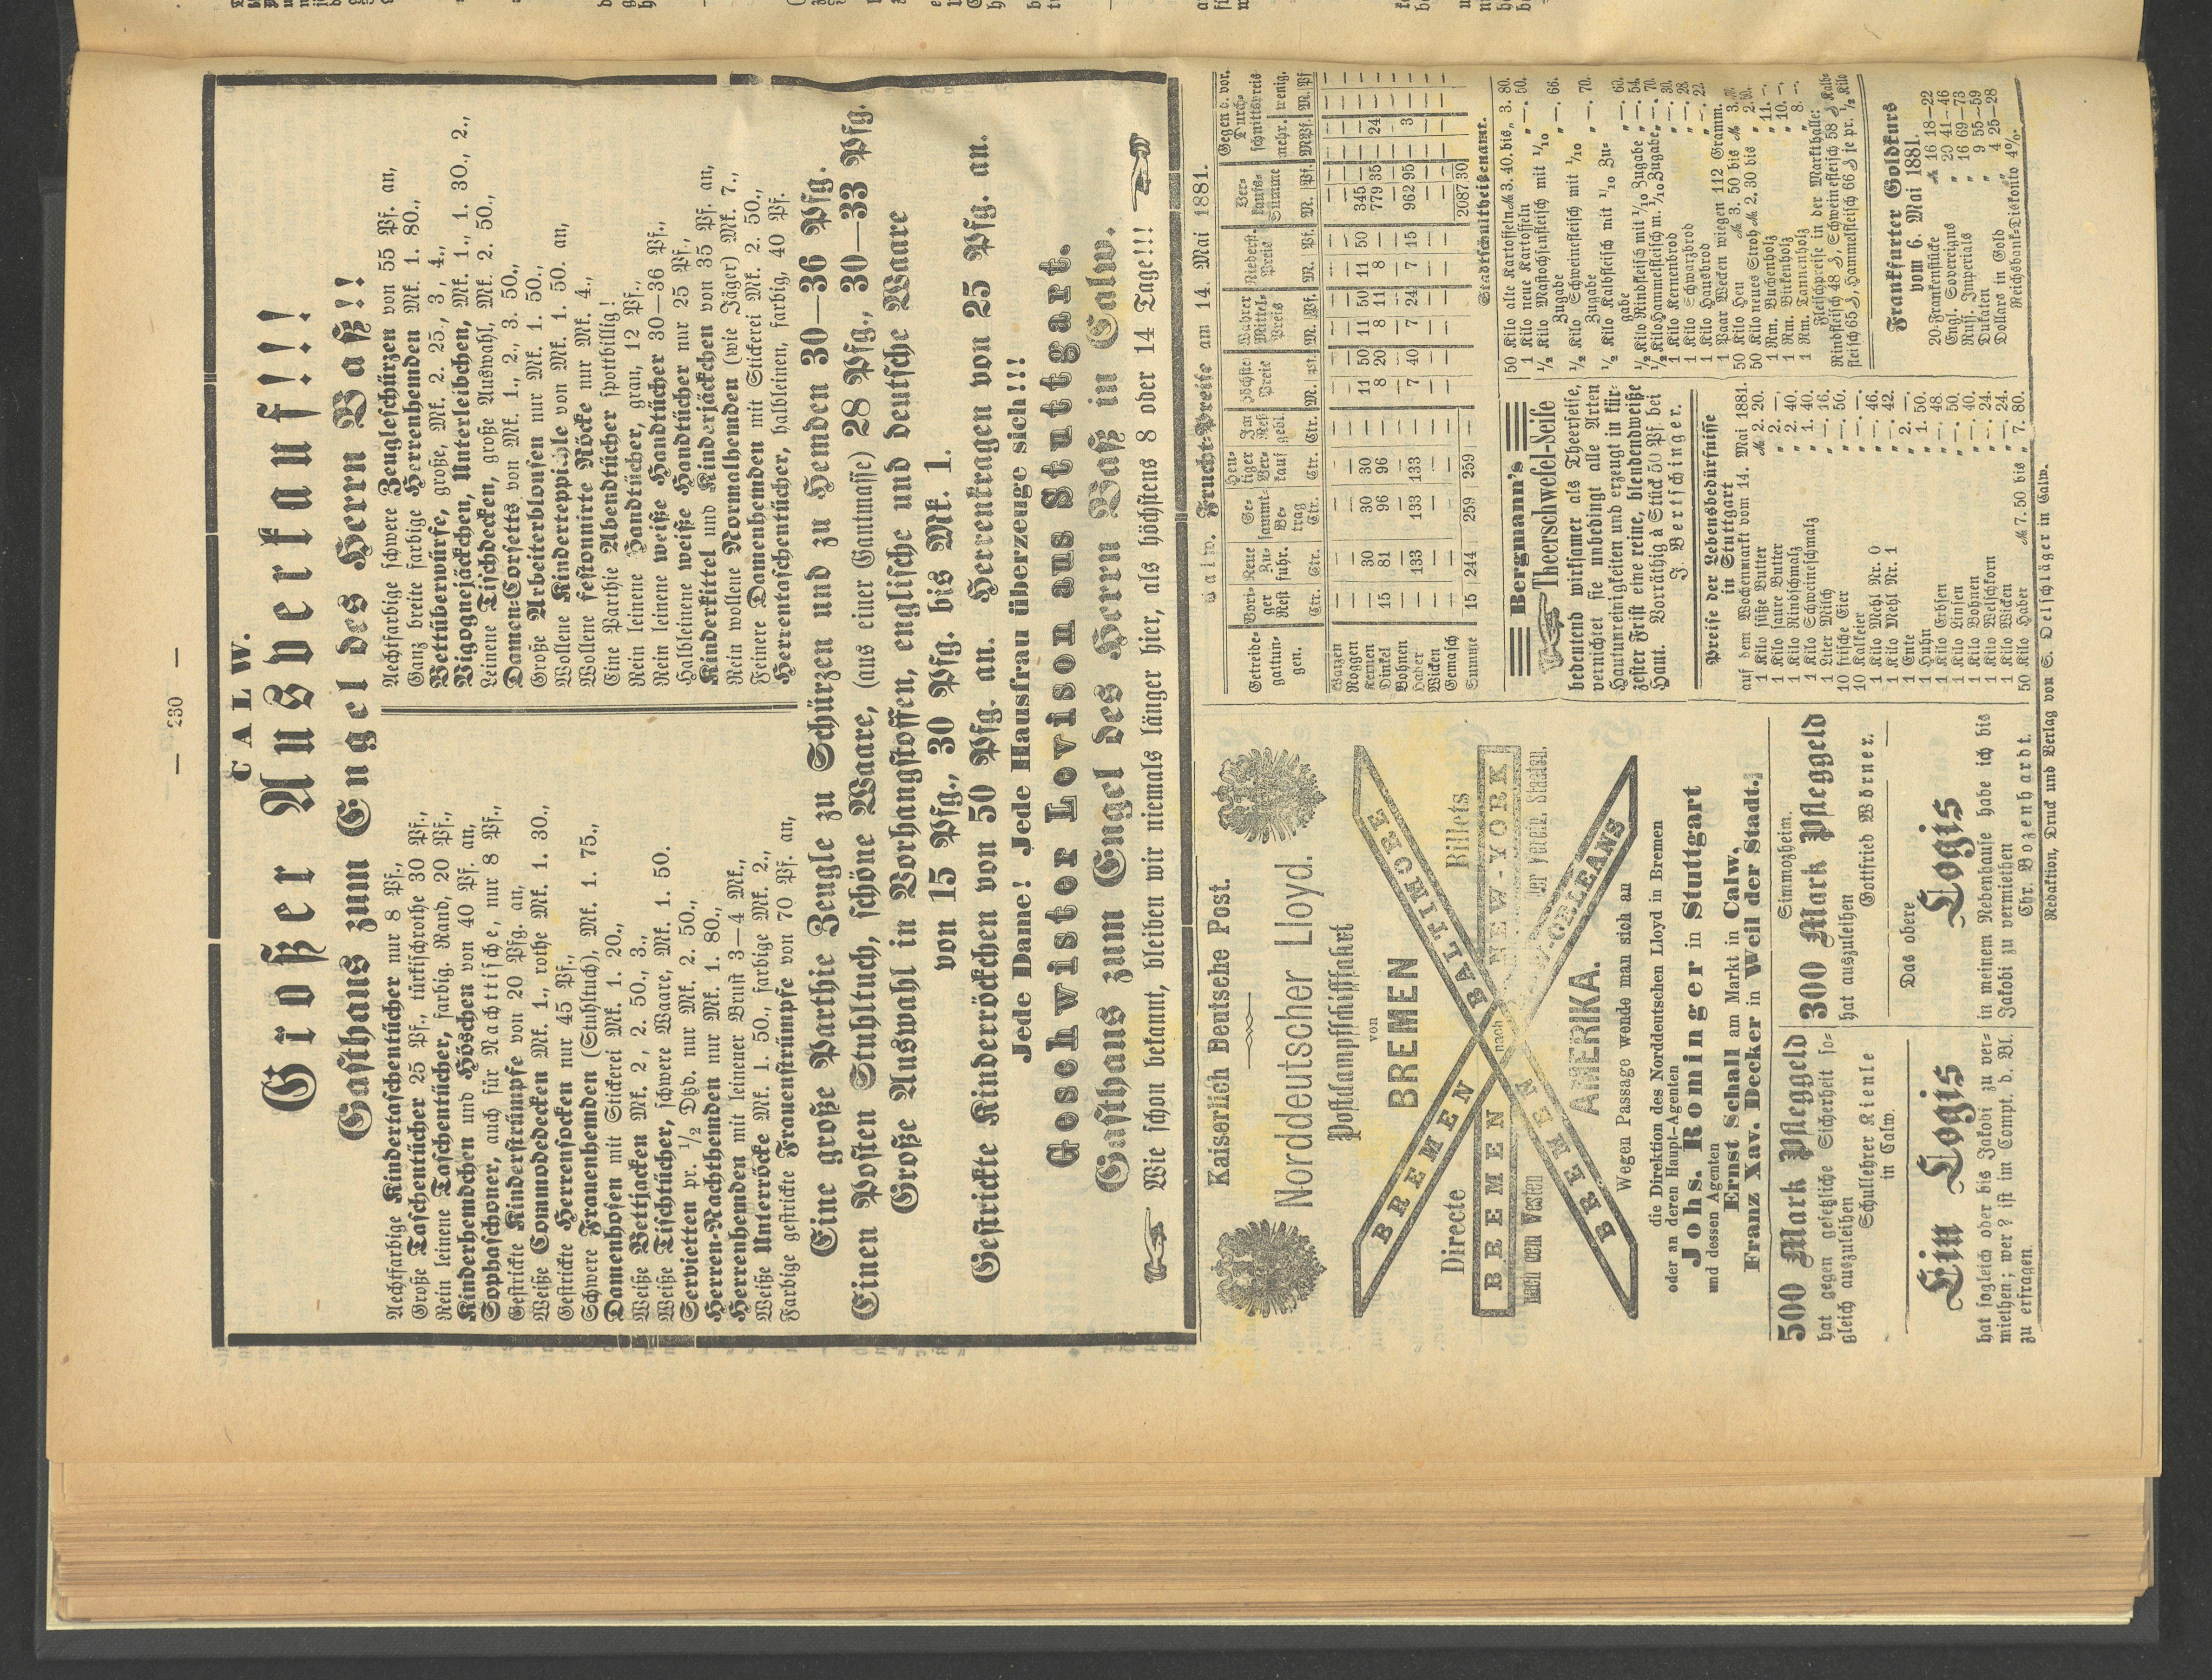 — 230 —
CALW.
Großer Ausverkauf!!!
Gasthaus zum Engel des Herrn Baß!!
Aechtfarbige Kindertaschentücher nur 8 Pf.,
Große Taschentücher 25 Pf., türkischrothe 30 Pf.,
Rein leinene Taschentücher, farbig. Rand, 20 Pf.,
Kinderhemdchen und Höschen von 40 Pf. an,
Sophaschoner, auch für Nachttische, nur 8 Pf.,
Gestrickte Kinderstrümpfe von 20 Pfg. an,
Weiße Commodedecken Mk. 1., rothe Mk. 1. 30.,
Gestrickte Herrensocken nur 45 Pf.,
Schwere Frauenhemden (Stuhltuch), Mk. 1. 75.,
Damenhosen mit Stickerei Mk. 1. 20.,
Weiße Bettjacken Mk. 2., 2. 50., 3.,
Weiße Tischtücher, schwere Waare, Mk. 1. 50.
Servietten pr. 1/2 Dtzd. nur Mk. 2. 50.,
Herren-Nachthemden nur Mk. 1. 80.,
Herrenhemden mit leinener Brust 3—4 Mk.,
Weiße Unterröcke Mk. 1. 50., farbige Mk. 2.,
Farbige gestrickte Frauenstrümpfe von 70 Pf. an,
Aechtfarbige schwere Zeugleschürzen von 55 Pf. an,
Ganz breite farbige Herrenhemden Mk. 1. 80.,
Bettüberwürfe, große, Mk. 2. 25., 3., 4.,
Vigognejäckchen, Unterleibchen, Mk. 1., 1. 30., 2.,
Leinene Tischdecken, große Auswahl, Mk. 2. 50.,
Damen-Corsetts von Mk. 1., 2., 3. 50.,
Große Arbeiterblousen nur Mk. 1. 50.,
Wollene Kinderteppichle von Mk. 1. 50. an,
Wollene festonnirte Röcke nur Mk. 4.,
Eine Parthie Abendtücher spottbillig!
Rein leinene Handtücher, grau, 12 Pf.,
Rein leinene weiße Handtücher 30—36 Pf.,
Halbleinene weiße Handtücher nur 25 Pf.,
Kinderkittel und Kinderjäckchen von 35 Pf. an,
Rein wollene Normalhemden (wie Jäger) Mk. 7.,
Feinere Damenhemden mit Stickerei Mk. 2. 50.,
Herrentaschentücher, halbleinen, farbig, 40 Pf.
Eine große Parthie Zeugle zu Schürzen und zu Hemden 30—36 Pfg.
Einen Posten Stuhltuch, schöne Waare, (aus einer Gantmasse) 28 Pfg., 30—33 Pfg.
Große Auswahl in Vorhangstoffen, englische und deutsche Waare
von 15 Pfg., 30 Pfg. bis Mk. 1.
Gestrickte Kinderröckchen von 50 Pfg. an. Herrenkragen von 25 Pfg. an.
Jede Dame! Jede Hausfrau überzeuge sich!!!
Geschwister Lovison aus Stuttgart.
Gasthaus zum Engel des Herrn Baß in Calw.
Wie schon bekannt, bleiben wir niemals länger hier, als höchstens 8 oder 14 Tage!!!
Kaiserlich Deutsche Post.
Norddeutscher Lloyd.
Postdampfschifffahrt
von
BREMEN
BREMEN BALTIMORE
Directe Billets
BREMEN nach NEW-YORK
nach dem Westen der Verein. Staaten.
BREMEN N.W.-ORLEANS
AMERIKA.
Wegen Passage wende man sich an
die Direktion des Norddeutschen Lloyd in Bremen
oder an deren Haupt-Agenten
Johs. Rominger in Stuttgart
und dessen Agenten
Ernst Schall am Markt in Calw,
Franz Xav. Decker in Weil der Stadt.
500 Mark Pfleggeld
hat gegen gesetzliche Sicherheit so-
gleich auszuleihen
Schullehrer Kienle
in Calw.
Ein Logis
hat sogleich oder bis Jakobi zu ver-
miethen; wer? ist im Compt. d. Bl.
zu erfragen.
Simmozheim.
300 Mark Pfleggeld
hat auszuleihen
Gottfried Wörner.
Das obere
Logis
in meinem Nebenhause habe ich bis
Jakobi zu vermiethen
Chr. Bozenhardt.
Calw. Frucht-Preise am 14. Mai 1881.
Getreide-gattungen. Voriger Rest Ctr. Neue Zufuhr. Ctr. Gesammt-Betrag Ctr. Heutiger Verkauf Ctr. Im Rest gebl. Ctr. Höchster Preis M. Pf. Wahrer Mittel-Preis M. Pf. Niederst. Preis M. Pf. Verkaufs-Summe M. Pf. Gegen d. vor. Durchschnittspreis mehr. M. Pf. wenig. M. Pf.
Waizen — — — — — — — — — — — — —
Roggen — — — — — — — — — — — — —
Kernen — 30 30 30 — 11 50 11 50 11 50 345 — — — — —
Dinkel 15 81 96 96 — 8 20 8 11 8 — 779 35 — 24 — —
Bohnen — — — — — — — — — — — — —
Haber — 133 133 133 — 7 40 7 24 7 15 962 95 — 3 — —
Wicken — — — — — — — — — — — — —
Gemasch — — — — — — — — — — — — —
Summe 15 244 259 259 — 2087 30
Stadtschultheißenamt.
Bergmann's
Theerschwefel-Seife
bedeutend wirksamer als Theerseife,
vernichtet sie unbedingt alle Arten
Hautunreinigkeiten und erzeugt in kür-
zester Frist eine reine, blendendweiße
Haut. Vorräthig à Stück 50 Pf. bei
J. Bertschinger.
Preise der Lebensbedürfnisse
in Stuttgart
auf dem Wochenmarkt vom 14. Mai 1881.
1 Kilo süße Butter M 2. 20.
1 Kilo saure Butter „ 2. —.
1 Kilo Rindschmalz „ 2. 40.
1 Kilo Schweineschmalz „ 1. 40.
1 Liter Milch „ —. 16.
10 frische Eier „ —. 50.
10 Kalkeier „ —. —.
1 Kilo Mehl Nr. 0 „ —. 46.
1 Kilo Mehl Nr. 1 „ —. 42.
1 Ente „ 2. —.
1 Huhn „ 1. 50.
1 Kilo Erbsen „ —. 48.
1 Kilo Linsen „ —. 50.
1 Kilo Bohnen „ —. 40.
1 Kilo Welschkorn „ —. 24.
1 Kilo Wicken „ —. 24.
50 Kilo Haber M 7. 50 bis „ 7. 80.
50 Kilo alte Kartoffeln M 3. 40. bis „ 3. 80.
1 Kilo neue Kartoffeln „ —. 50.
1/2 Kilo Mastochsenfleisch mit 1/10
Zugabe „ —. 66.
1/2 Kilo Schweinefleisch mit 1/10
Zugabe „ —. 70.
1/2 Kilo Kalbfleisch mit 1/10 Zu-
gabe „ —. 60.
1/2 Kilo Rindfleisch mit 1/10 Zugabe „ —. 54.
1/2 Kilo Hammelfleisch m. 1/10 Zugabe „ —. 70.
1 Kilo Kernenbrod „ —. 30.
1 Kilo Schwarzbrod „ —. 28.
1 Kilo Hausbrod „ —. 22.
1 Paar Wecken wiegen 112 Gramm.
50 Kilo Heu M 3. 50 bis M 3.
50 Kilo neues Stroh M 2. 30 bis „ 2. 50.
1 Rm. Buchenholz „ 11. —.
1 Rm. Birkenholz „ 10. —.
1 Rm. Tannenholz „ 8. —.
Fleischpreise in der Markthalle:
Rindfleisch 48 ₰, Schweinefleisch 58 ₰, Kalb-
fleisch 65 ₰, Hammelfleisch 66 ₰ je pr. 1/2 Kilo
Frankfurter Goldkurs
vom 6. Mai 1881.
20-Frankenstücke M 16 18—22
Engl. Sovereigns „ 20 41—46
Russ. Imperials „ 16 69—73
Dukaten „ 9 55—59
Dollars in Gold „ 4 25—28
Reichsbank-Diskonto 4%.
Redaktion, Druck und Verlag von S. Oelschläger in Calw.